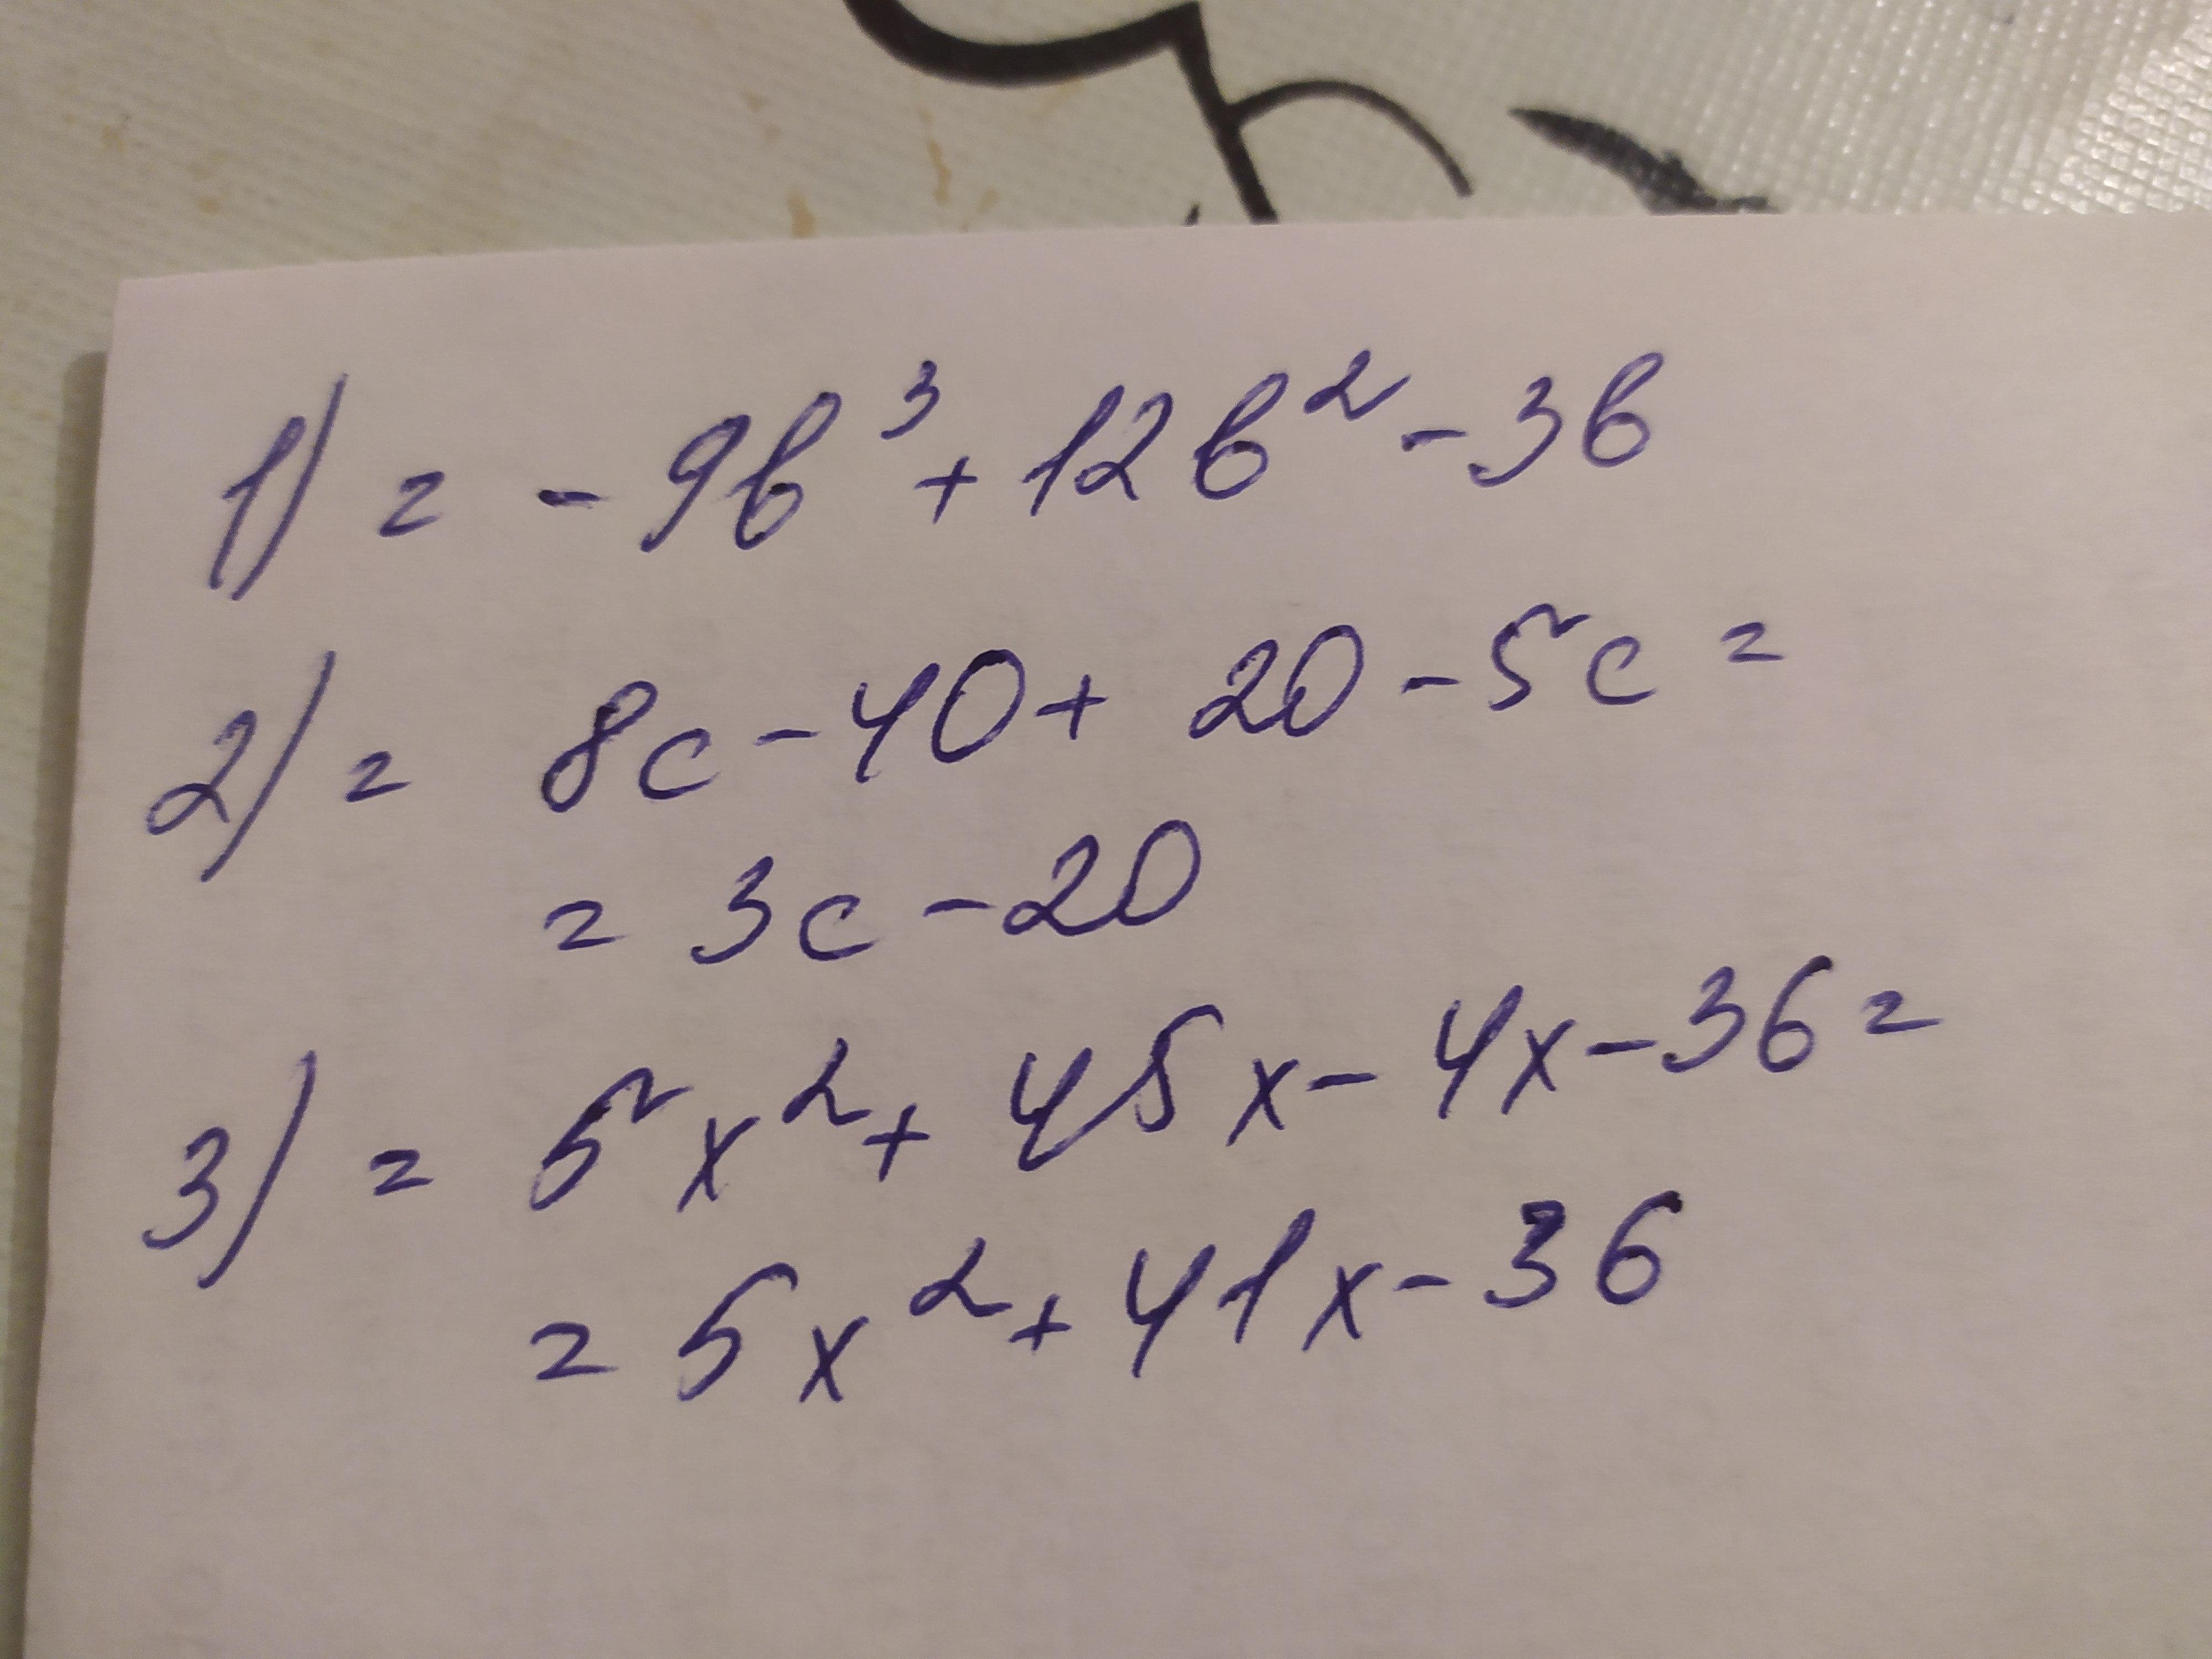 1) = - 9b³ + 12b² - 3b
2) = 8c - 40 + 20 - 5c =
= 3c - 20
3) = 5x² + 45x - 4x - 36 =
= 5x² + 41x - 36